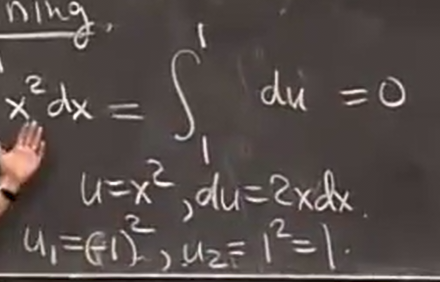 ning.
x²dx = ∫₁¹ du = 0
u=x², du=2xdx.
u₁=(-1)², u₂=1²=1.